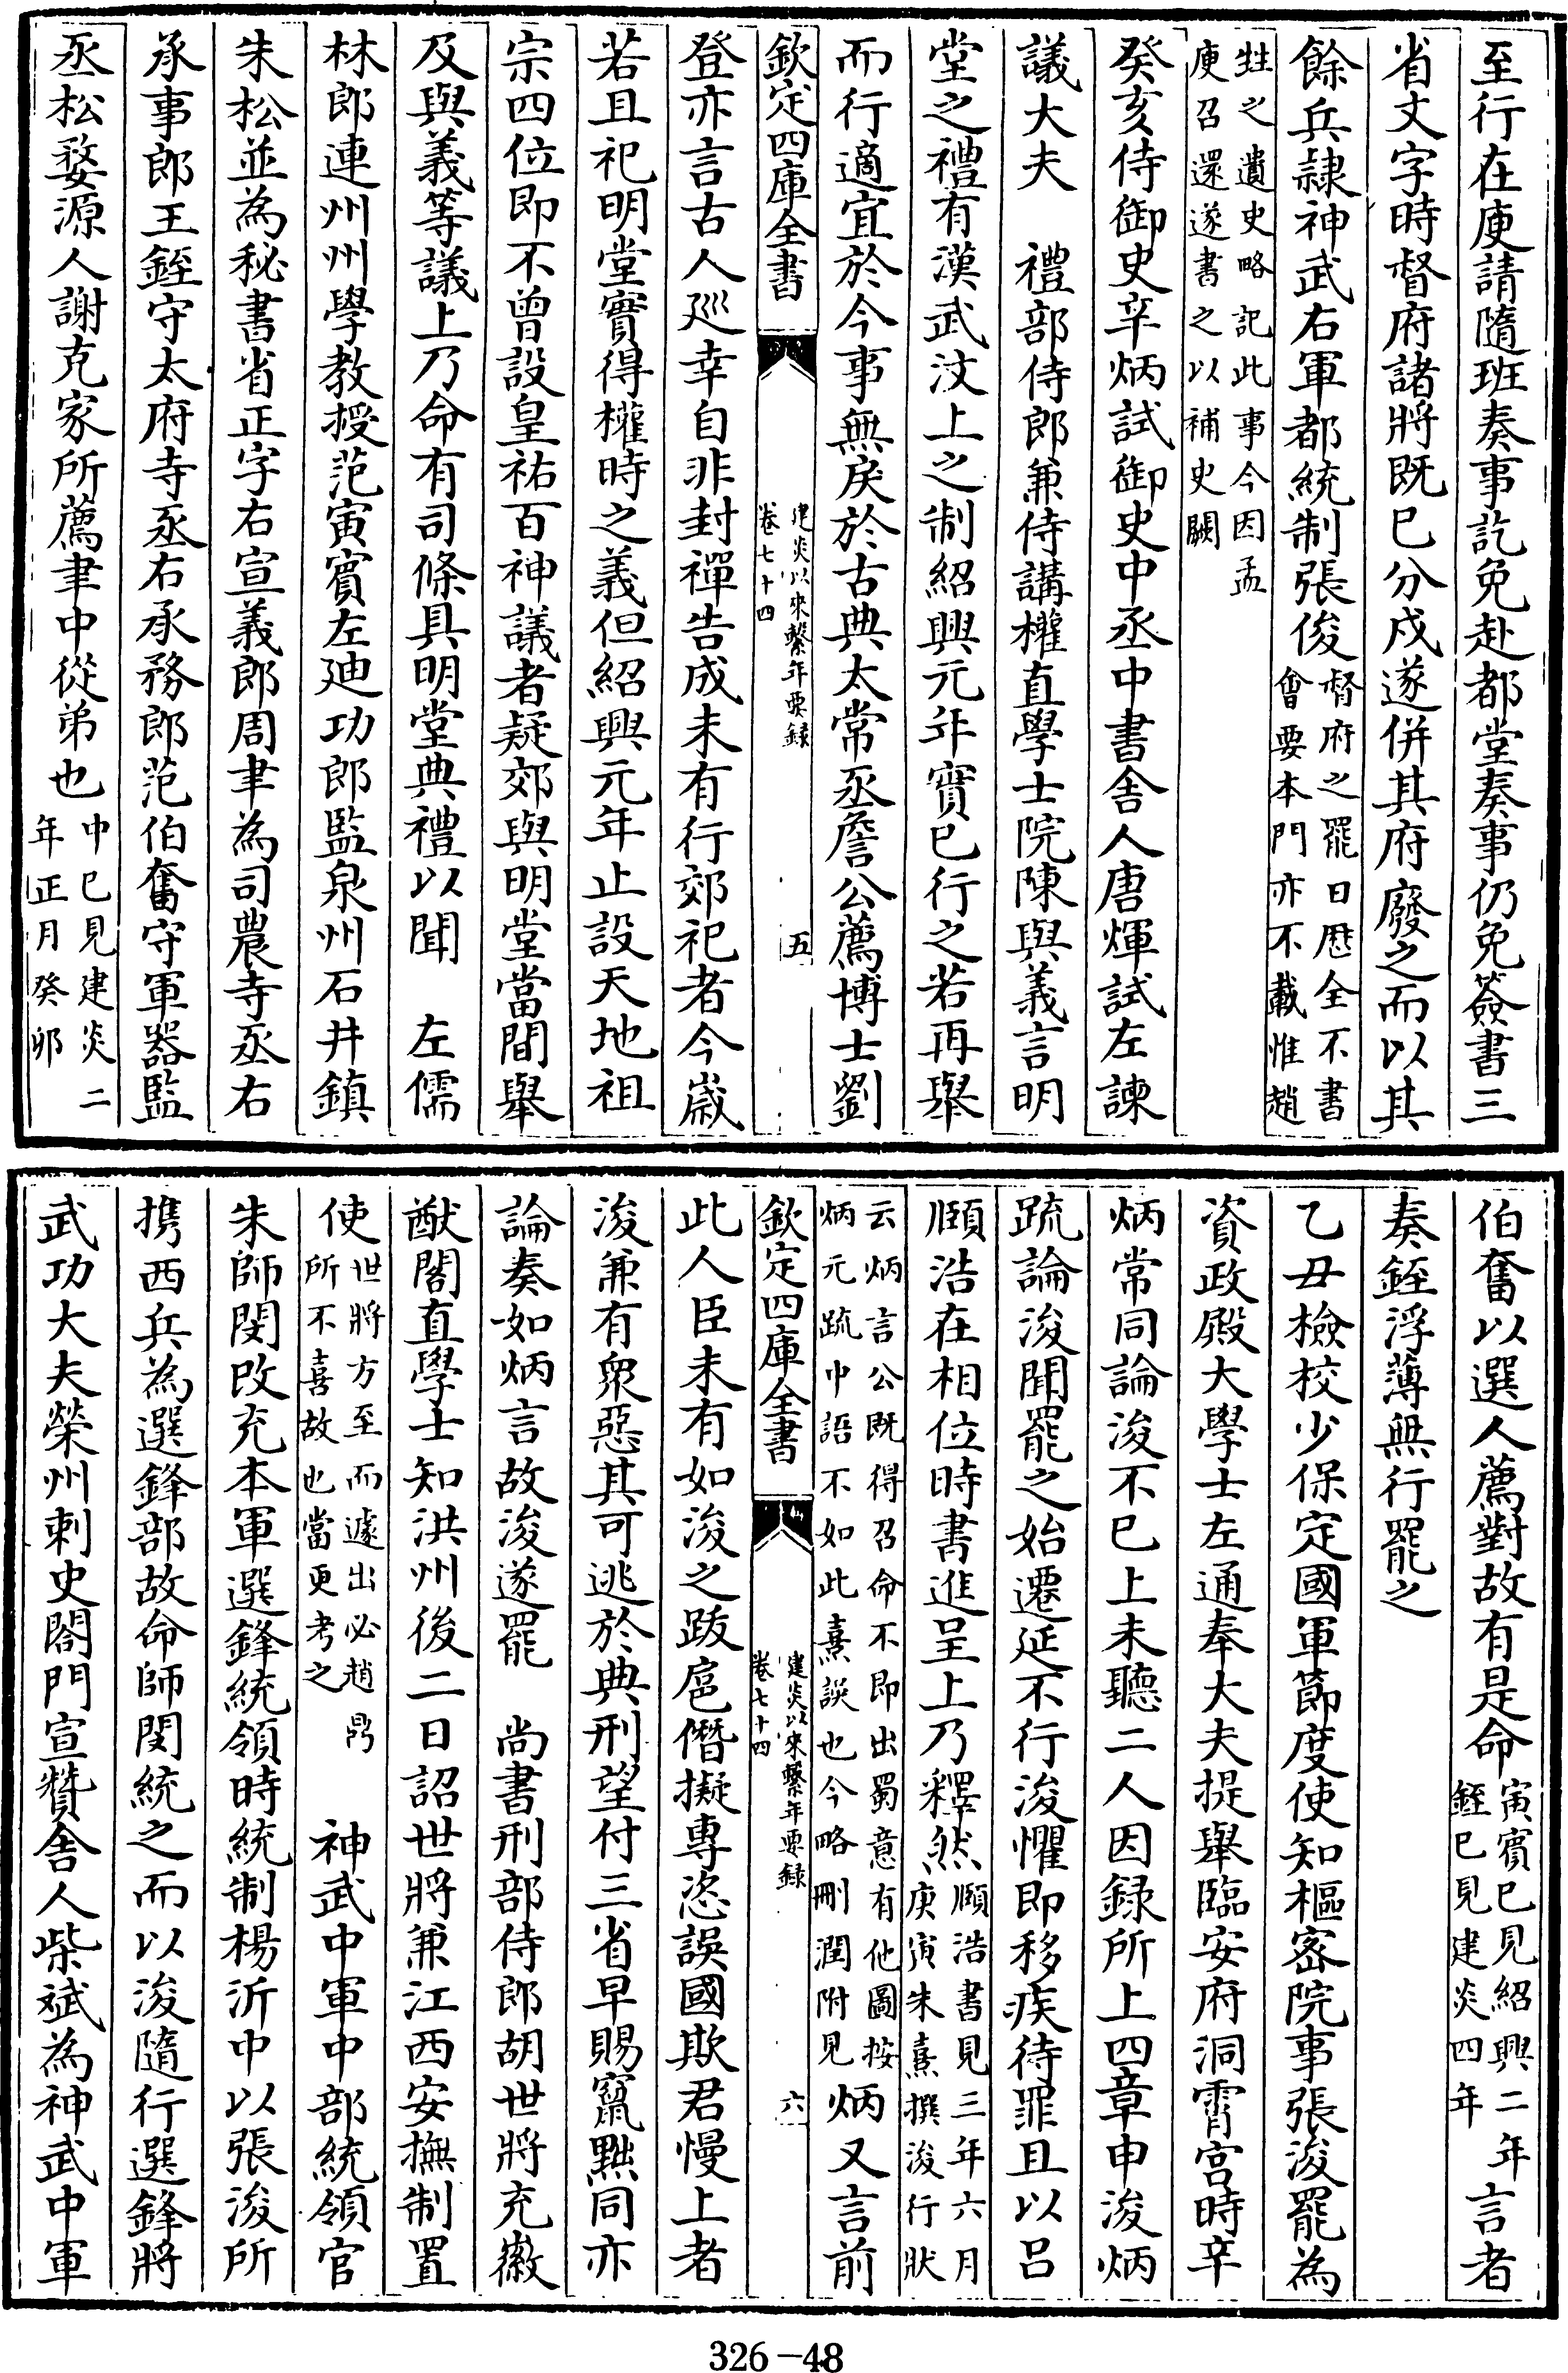 至行在庾請隨班奏事訖免赴都堂奏事仍免簽書三
省文字時督府諸將既已分戍遂併其府廢之而以其
餘兵隷神武右軍都統制張俊督府之罷日厯全不書會要本門亦不載惟趙
甡之遺史略記此事今因孟庾召還遂書之以補史闕
癸亥侍御史辛炳試御史中丞中書舍人唐煇試左諫
議大夫　禮部侍郎兼侍講權直學士院陳與義言明
堂之禮有漢武汶上之制紹興元年實已行之若再舉
而行適宜於今事無戾於古典太常丞詹公薦博士劉
欽定四庫全書
建炎以來繫年要録
卷七十四
五
登亦言古人巡幸自非封禪告成未有行郊祀者今嵗
若且祀明堂實得權時之義但紹興元年止設天地祖
宗四位即不曾設皇祐百神議者疑郊與明堂當間舉
及與義等議上乃命有司條具明堂典禮以聞　左儒
林郎連州州學教授范寅賓左廸功郎監泉州石井鎮
朱松並為秘書省正字右宣義郎周聿為司農寺丞右
承事郎王銍守太府寺丞右承務郎范伯奮守軍器監
丞松婺源人謝克家所薦聿中從弟也中已見建炎二年正月癸卯
伯奮以選人薦對故有是命寅賓已見紹興二年銍已見建炎四年言者
奏銍浮薄無行罷之
乙丑檢校少保定國軍節度使知樞密院事張浚罷為
資政殿大學士左通奉大夫提舉臨安府洞霄宫時辛
炳常同論浚不已上未聽二人因録所上四章申浚炳
疏論浚聞罷之始遷延不行浚懼即移疾待罪且以吕
頤浩在相位時書進呈上乃釋然頤浩書見三年六月庚寅朱熹撰浚行狀
云炳言公既得召命不即出蜀意有他圖按炳元疏中語不如此熹誤也今略刪潤附見炳又言前
欽定四庫全書
建炎以來繫年要録
卷七十四
六
此人臣未有如浚之跋扈僭擬專恣誤國欺君慢上者
浚兼有衆惡其可逃於典刑望付三省早賜竄黜同亦
論奏如炳言故浚遂罷　尚書刑部侍郎胡世將充徽
猷閣直學士知洪州後二日詔世將兼江西安撫制置
使世將方至而遽出必趙鼎所不喜故也當更考之　神武中軍中部統領官
朱師閔改充本軍選鋒統領時統制楊沂中以張浚所
携西兵為選鋒部故命師閔統之而以浚隨行選鋒將
武功大夫榮州刺史閤門宣贊舍人柴斌為神武中軍
326-48